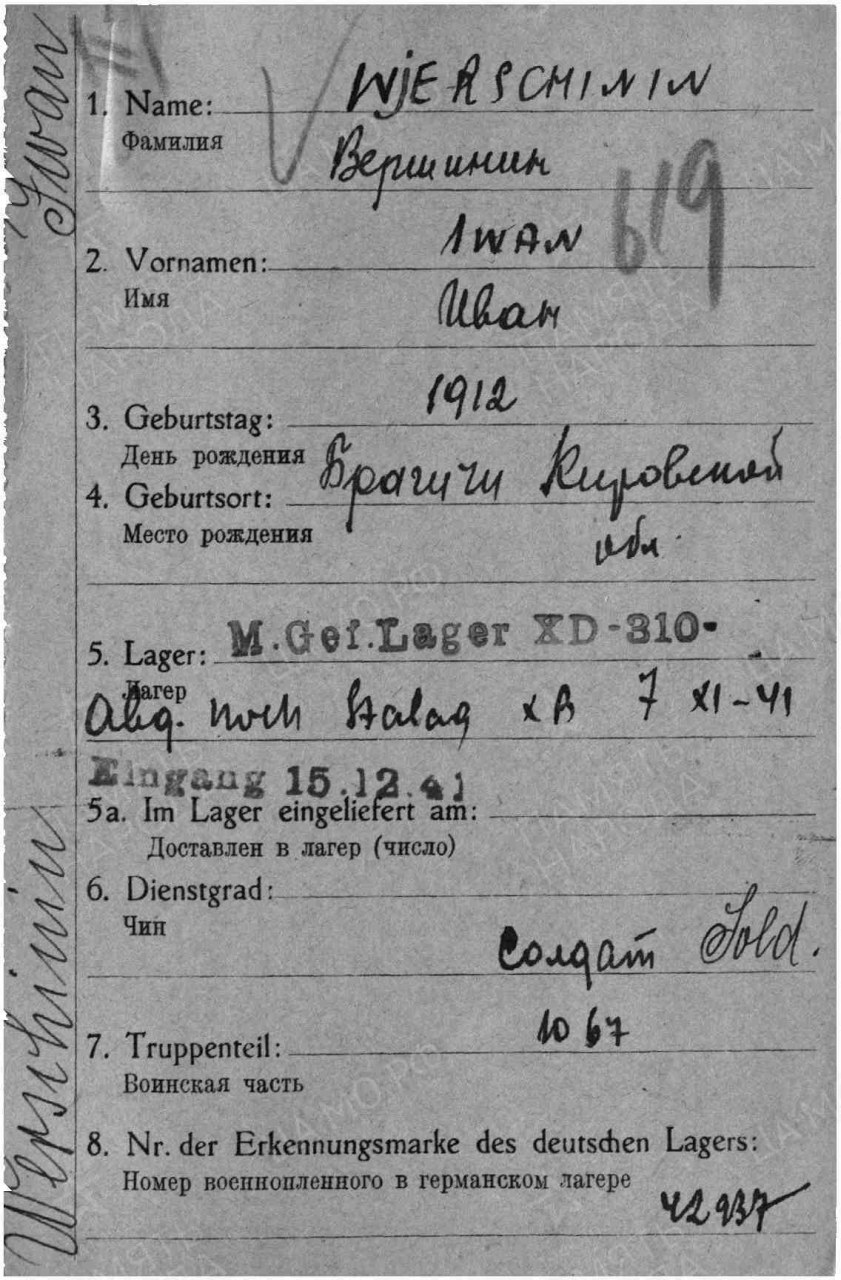 WJERSCHININ
1. Name:
Фамилия
Вершинин
619
1WAN
2. Vornamen:
Имя
Иван
1912
3. Geburtstag:
День рождения
Брагичи Кировской
4. Geburtsort:
Место рождения
обл.
M.Gef.Lager XD-310-
5. Lager:
Лагер
Abg. noch Stalag XB 7 XI-41
Eingang 15.12.41
5a. Im Lager eingeliefert am:
Доставлен в лагер (число)
6. Dienstgrad:
Чин
Солдат Sold.
7. Truppenteil:
1067
Воинская часть
8. Nr. der Erkennungsmarke des deutschen Lagers:
Номер военнопленного в германском лагере
42937
Werschinin
Iwan